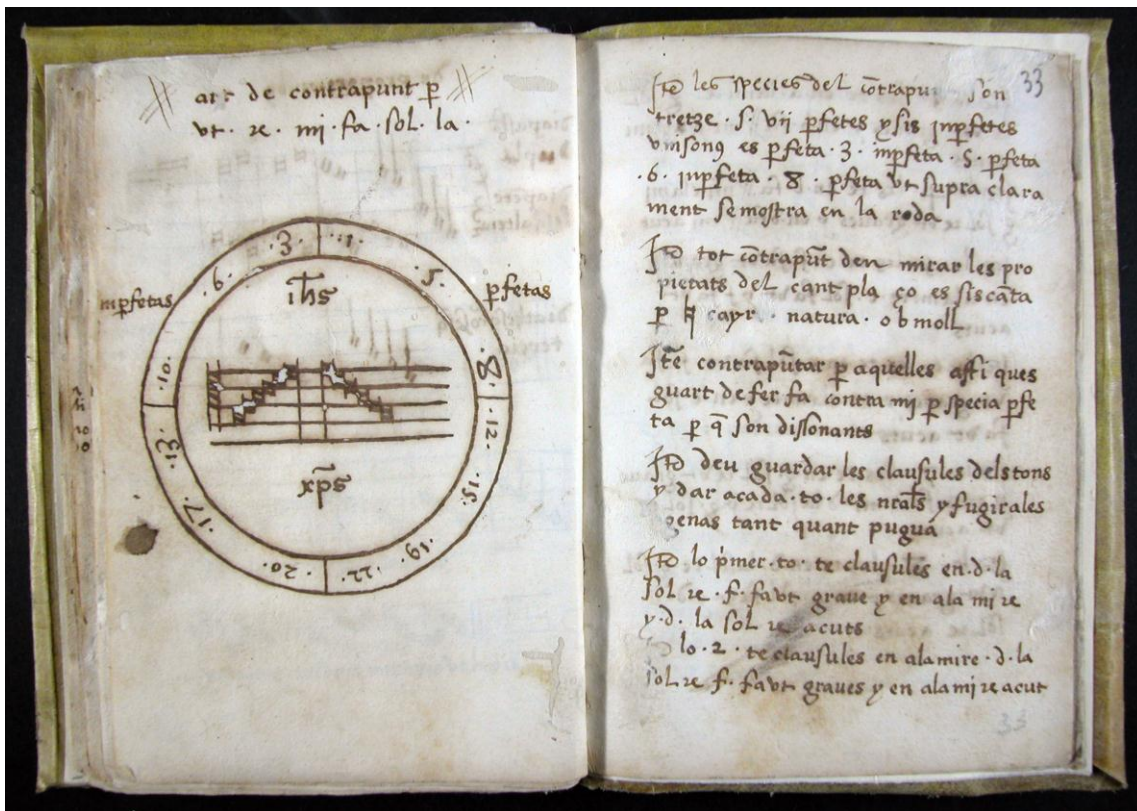 art de contrapunt p̄
vt · re · mi · fa · sol · la ·
jmp̄fetas
p̄fetas
·3·
·1·
·5·
·8·
·12·
·15·
·19·
·22·
·20·
·17·
·13·
·10·
·6·
ih̄s
xp̄s
33
Itē les species del cōtrapu son
tretze · s · vii p̄fetes y sis jmp̄fetes
vnisonꝰ es p̄feta · 3 · imp̄feta · 5 · p̄feta
· 6 · jmp̄feta · 8 · p̄feta vt supra clara
ment se mostra en la roda
Itē tot cōtrapūt deu mirar les pro
pietats del cant pla ço es sis cāta
p̄ ♮ cayr · natura · o b moll
Itē contrapūtar p̄ aquelles assi ques
guart de fer fa contra mi p̄ specia p̄fe
ta p̄ q̄ son dissonants
Itē deu guardar les clausules dels tons
y dar a cada · to · les nr̄als y fugir a les
genas tant quant puguā
Itē lo p̍mer · to · te clausules en · d · la
sol re · f · fa vt graue y en a la mi re
y · d · la sol re acuts
lo · 2 · te clausules en alamire · d · la
sol re f · fa vt graues y en a la mi re acut
33